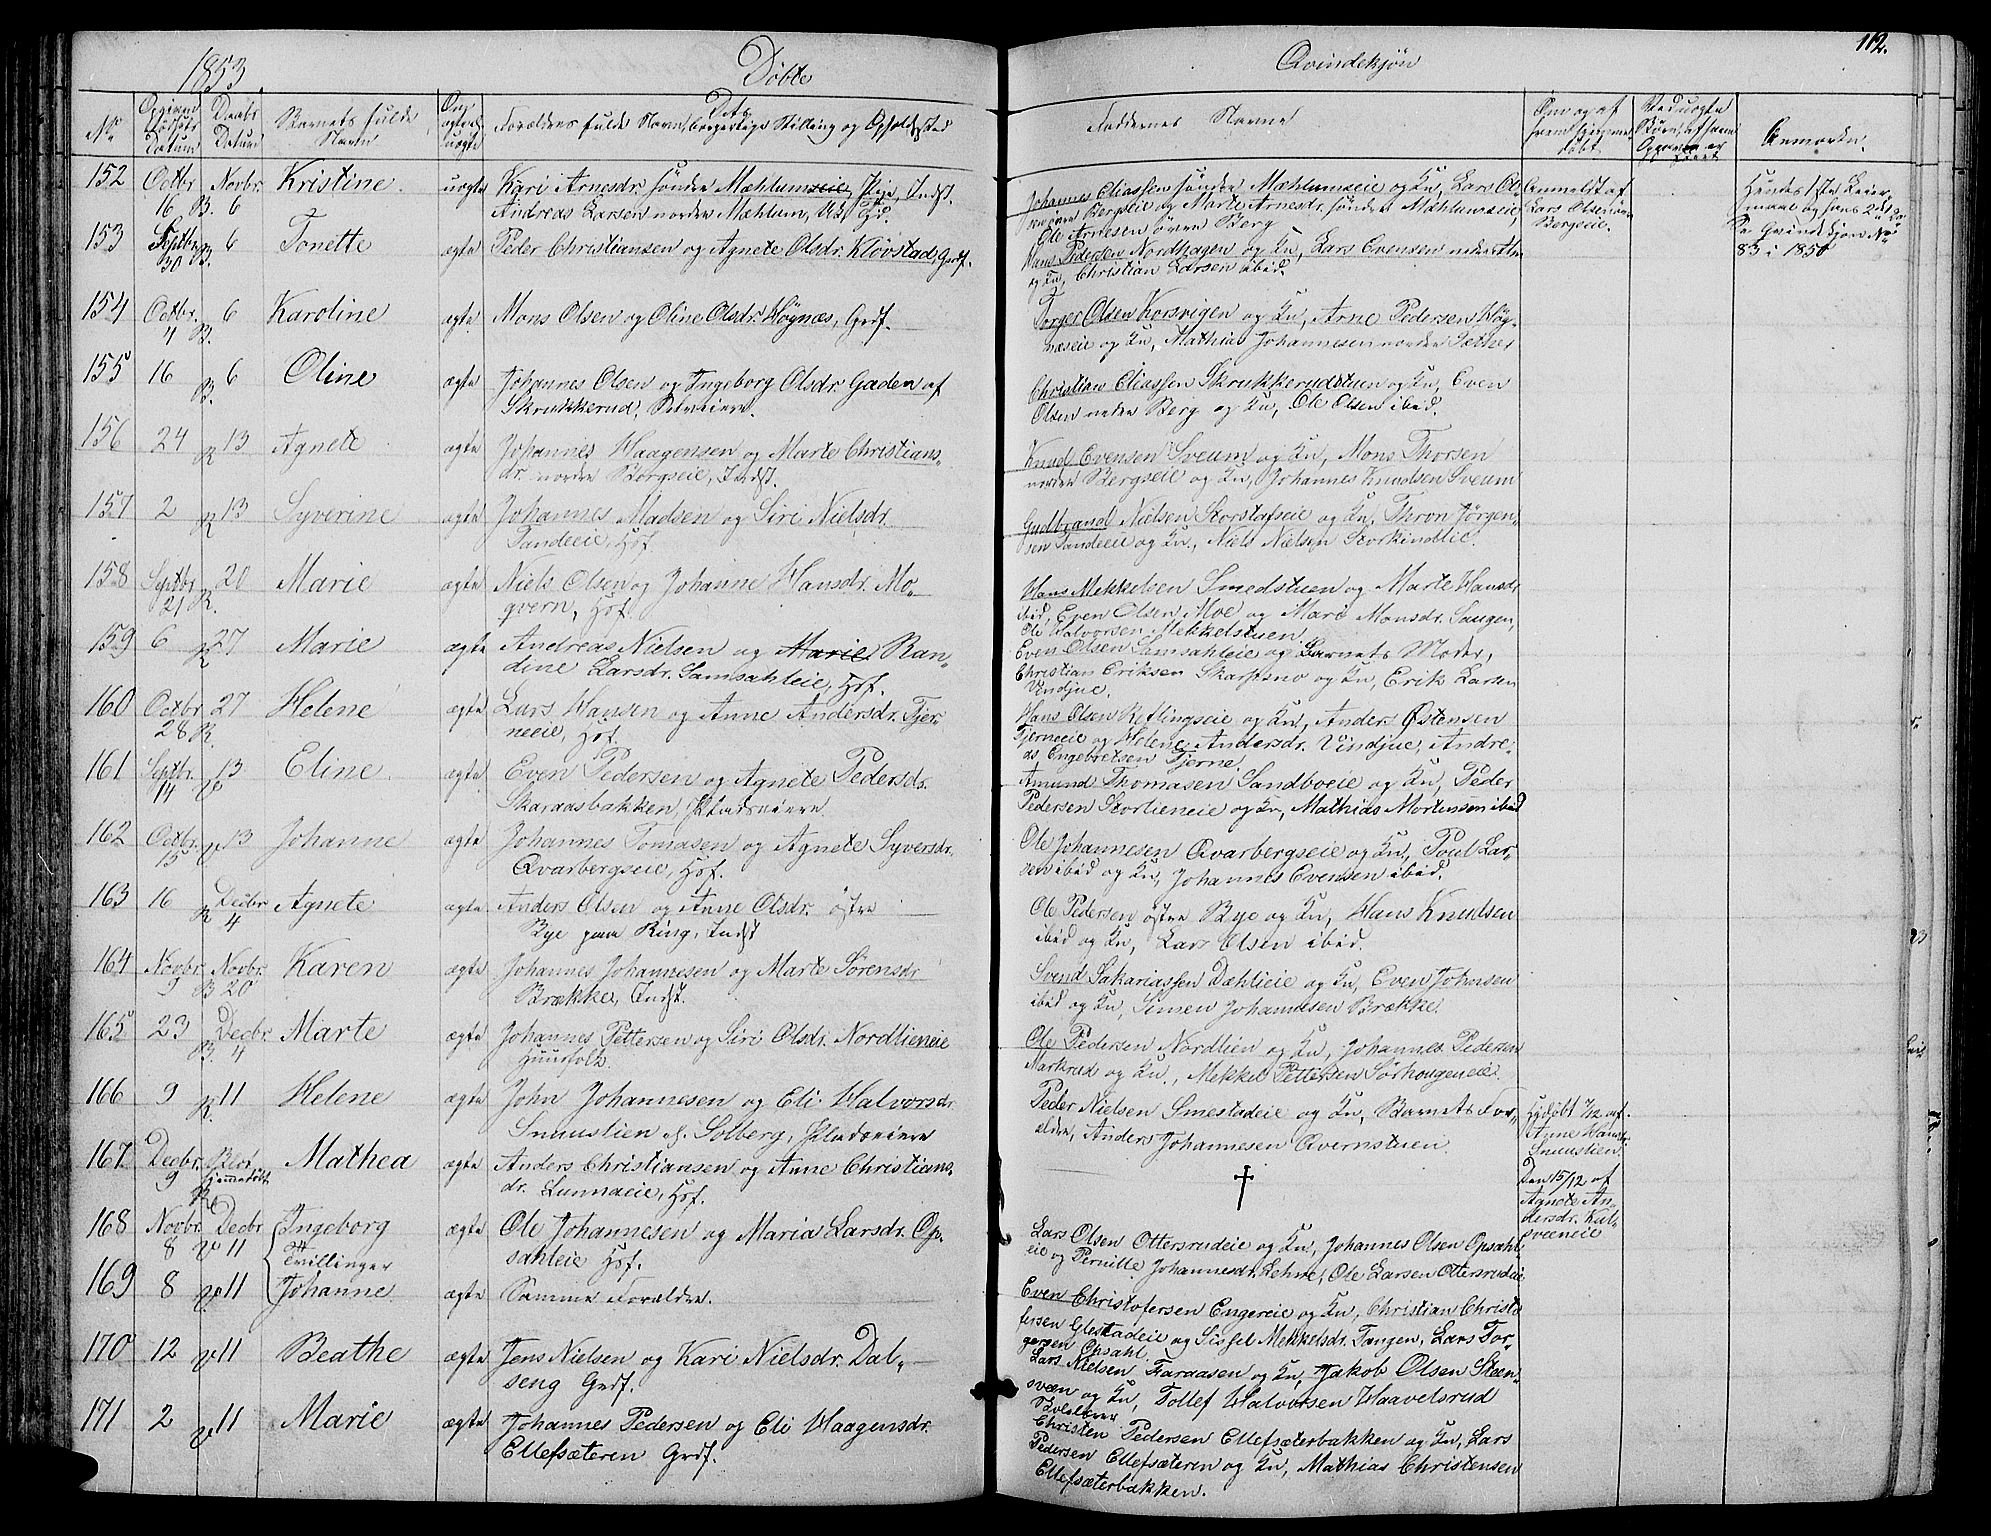 1853.
Döbte
Qvindekjön
112.
No
Opgiven Födsels Datum
Daabs Datum
Barnets fulde Navn
Om ægte el. uægte
Forældres fulde Navn, borgerlige Stilling og Opholdssted
Faddernes Navne
Om og af hvem hjemmedöbt
Anmærkn.
152 Octbr. 16 B. Novbr. 6 Kristine. uægte Kari Arnesdr. söndre Mæhlumseie, Pige, Indst.
Andreas Larsen nordre Mæhlum,
Johannes Eliassen söndre Mæhlumseie og Kn, Lars Ol-
sen övre Bergseie og Marte Arnesdr. söndre Mæhlumseie,
Ole Arnesen övre Berg
Anmeldt af
Lars Olsen övre
Bergseie.
Hendes 1ste Leier-
maal og hans 2det
83 i 1850
153 Septbr. 30 B. 6 Tonette ægte Peder Christiansen og Agnete Olsdr. Klövstad, Grdf.
Hans Pedersen Nordhagen og Kn, Lars Evensen nedre
og Kn, Christian Larsen ibid.
154 Octbr. 4 B. 6 Karoline ægte Mons Olsen og Oline Olsdr. Högnæs, Grdf.
Torger Olsen Korsvigen og Kn, Arne Pedersen Hög-
næseie og Kn, Mathias Johannesen nordre Sæther
155 16 B. 6 Oline ægte Johannes Olsen og Ingeborg Olsdr. Gaden af
Skrukkerud, Selveiere.
Christian Eliassen Skrukkerudstuen og Kn, Even
Olsen nedre Berg og Kn, Ole Olsen ibid.
156 24 R 13 Agnete ægte Johannes Haagensen og Marte Christians-
dr. nordre Bergseie, Indst.
Knud Evensen Sveum og Kn, Mons Thorsen
nordre Bergseie og Kn, Johannes Knudsen Sveum
157 2 R 13 Syverine ægte Johannes Madsen og Siri Nielsdr.
Tandeeie, Hof
Gudbrand Nielsen Storstafseie og Kn, Thron Jörgen-
sen Tandeeie og Kn., Niels Nielsen Storkindlie.
158 Septbr. 21 R. 20 Marie ægte Niels Olsen og Johanne Hansdr. Mo-
qvern, Hof.
Hans Mekkelsen Smedstuen og Marte Hansdr
ibid, Even Olsen Moe og Mari Monsdr. Haugen,
Ole Halvorsen Mekkelstuen
159 6 R 27 Marie ægte Andreas Nielsen og Marie Ran-
dine Larsdr. Samsahleie, Hof.
Even Olsen Samsahleie og Barnets Moder,
Christian Eriksen Skarpsno og Kn, Erik Larsen
Vindjue.
160 Octbr. 28 R. 27 Helene ægte Lars Hansen og Anne Andersdr. Tjer-
neeie, Hof.
Hans Olsen Keflingseie og Kn, Anders Östensen
Tjerneeie og Helene Andersdr. Vindjue, Andre-
as Engebretsen Tjerne
161 Septbr. 14 V 13 Eline ægte Even Pedersen og Agnete Pedersdr.
Skaraasbakken, Pladseiere
Amund Thomasen Sandboeie og Kn, Peder
Pedersen Stortieneie og Kn, Mathias Mortensen ibid
162 Octbr. 15 V 13 Johanne ægte Johannes Tomasen og Agnete Syversdr.
Qvarbergseie, Hof.
Ole Johannesen Qvarbergseie og Kn, Poul Lar-
sen ibid og Kn, Johannes Evensen ibid.
163 16 R Decbr 4 Agnete ægte Anders Olsen og Anne Olsdr. östre
Bye paa Ring, Indst
Ole Pedersen östre Bye og Kn, Hans Knudsen
ibid og Kn, Lars Olsen ibid.
164 Novbr. 9 B Novbr. 20 Karen ægte Johannes Johannesen og Marte Sörensdr
Brække, Indst.
Svend Sakariassen Dæhlieie og Kn, Even Johnsen
ibid og Kn, Simen Johannesen Brække.
165 23 B. Decbr 4 Marte ægte Johannes Pettersen og Siri Olsdr. Nordlieneie
Huusfolk.
Ole Pedersen Nordlien og Kn, Johannes Pedersen
Markrud og Kn., Mekkel Pettersen Sörhougeneie.
166 9 R. 11 Helene ægte John Johannesen og Eli Halvorsdr.
Snuustien u. Solberg, Pladseiere
Peder Nielsen Smestadeie og Kn, Barnets For-
ældre, Anders Johannesen Qvernstuen.
Hjdöbt af
Anne Hansdr.
Snuustien.
167 Decbr. 9 R. Blot hjemmedöbt Mathea ægte Anders Christiansen og Anne Christians-
dr. Lunnaeie, Hof.
†
Den 15/12 af
Agnete An-
dersdr. Kal-
sveeneie
168 Novbr. 8 V Decbr. 11 Ingeborg ægte Ole Johannesen og Maria Larsdr. Op-
sahleie Hof.
Tvillinger
Lars Olsen Ottersrudeie og Kn, Johannes Olsen Opsahl-
eie og Pernille Johannesdr. Lehne, Ole Larsen Ottersrudeie
169 8 V 11 Johanne ægte Samme Forældre.
Even Christofersen Engereie og Kn, Christian Christo
fersen Glestadeie og Sissel Mekkelsdr. Tangen, Lars Tor-
gersen Opsahl
170 12 V 11 Beathe ægte Jens Nielsen og Kari Nielsdr. Dal-
seng Grdf.
Lars Nielsen Faraasen og Kn, Jakob Olsen Steen-
sveen og Kn, Tollef Halvorsen Haavelsrud
171 2 V 11 Marie ægte Johannes Pedersen og Eli Haagensdr.
Ellefsæteren Grdf.
Christen Pedersen Ellefsæterbakken og Kn, Lars
Pedersen Ellefsæteren og Kn, Mathias Christensen
Ellefsæterbakken.